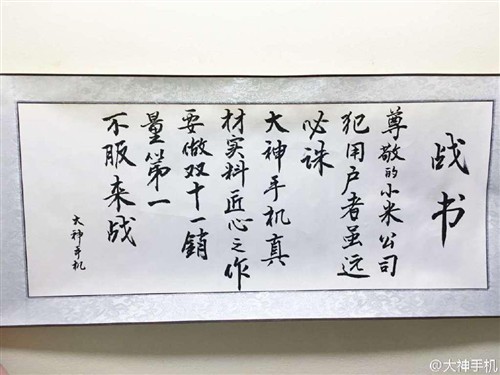 战书
尊敬的小米公司
犯用户者虽远
必诛
大神手机真
材实料匠心之作
要做双十一销
量第一
不服来战
大神手机
@大神手机